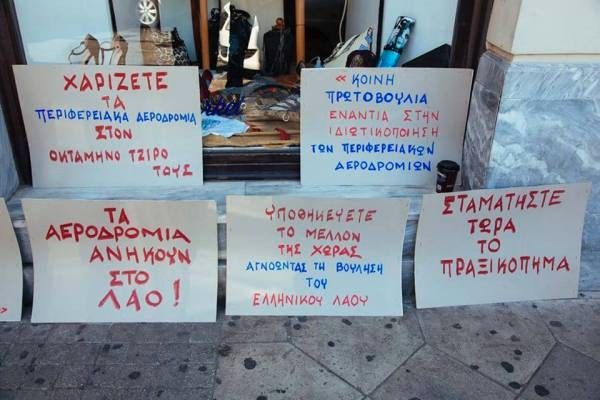 ΧΑΡΙΖΕΤΕ
ΤΑ
ΠΕΡΙΦΕΡΕΙΑΚΑ ΑΕΡΟΔΡΟΜΙΑ
ΣΤΟΝ
ΟΚΤΑΜΗΝΟ ΤΖΙΡΟ
ΤΟΥΣ
« ΚΟΙΝΗ
ΠΡΩΤΟΒΟΥΛΙΑ
ΕΝΑΝΤΙΑ ΣΤΗΝ
ΙΔΙΩΤΙΚΟΠΟΙΗΣΗ
ΤΩΝ ΠΕΡΙΦΕΡΕΙΑΚΩΝ
ΑΕΡΟΔΡΟΜΙΩΝ
ΤΑ
ΑΕΡΟΔΡΟΜΙΑ
ΑΝΗΚΟΥΝ
ΣΤΟ
ΛΑΟ!
ΥΠΟΘΗΚΕΥΕΤΕ
ΤΟ ΜΕΛΛΟΝ
ΤΗΣ ΧΩΡΑΣ
ΑΓΝΟΩΝΤΑΣ ΤΗ ΒΟΥΛΗΣΗ
ΤΟΥ
ΕΛΛΗΝΙΚΟΥ ΛΑΟΥ
ΣΤΑΜΑΤΗΣΤΕ
ΤΩΡΑ
ΤΟ
ΠΡΑΞΙΚΟΠΗΜΑ